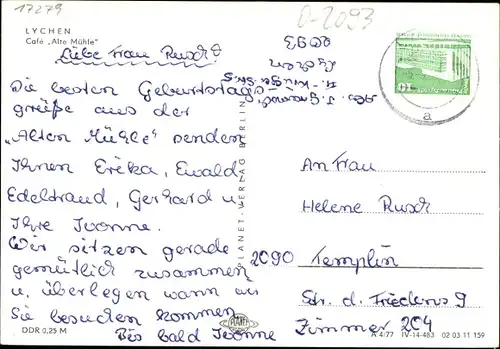 17279
D-2093
LYCHEN
Café „Alte Mühle"
Liebe Frau Rusch!
Die besten Geburtstags-
grüße aus der
„Alten Mühle" senden
Ihnen Erika, Ewald,
Edeltraud, Gerhard u
Ihre Ivonne.
Wir sitzen gerade
gemütlich zusammen
u. überlegen wann wir
Sie besuchen kommen
Bis bald Ivonne
DDR 0,25 M
PLANET-VERLAG BERLIN
Abs.
2093
a
10
An Frau
Helene Rusch
2090 Templin
Str. d. Friedens 9
Zimmer 204
A 4/77 IV-14-483 02 03 11 159